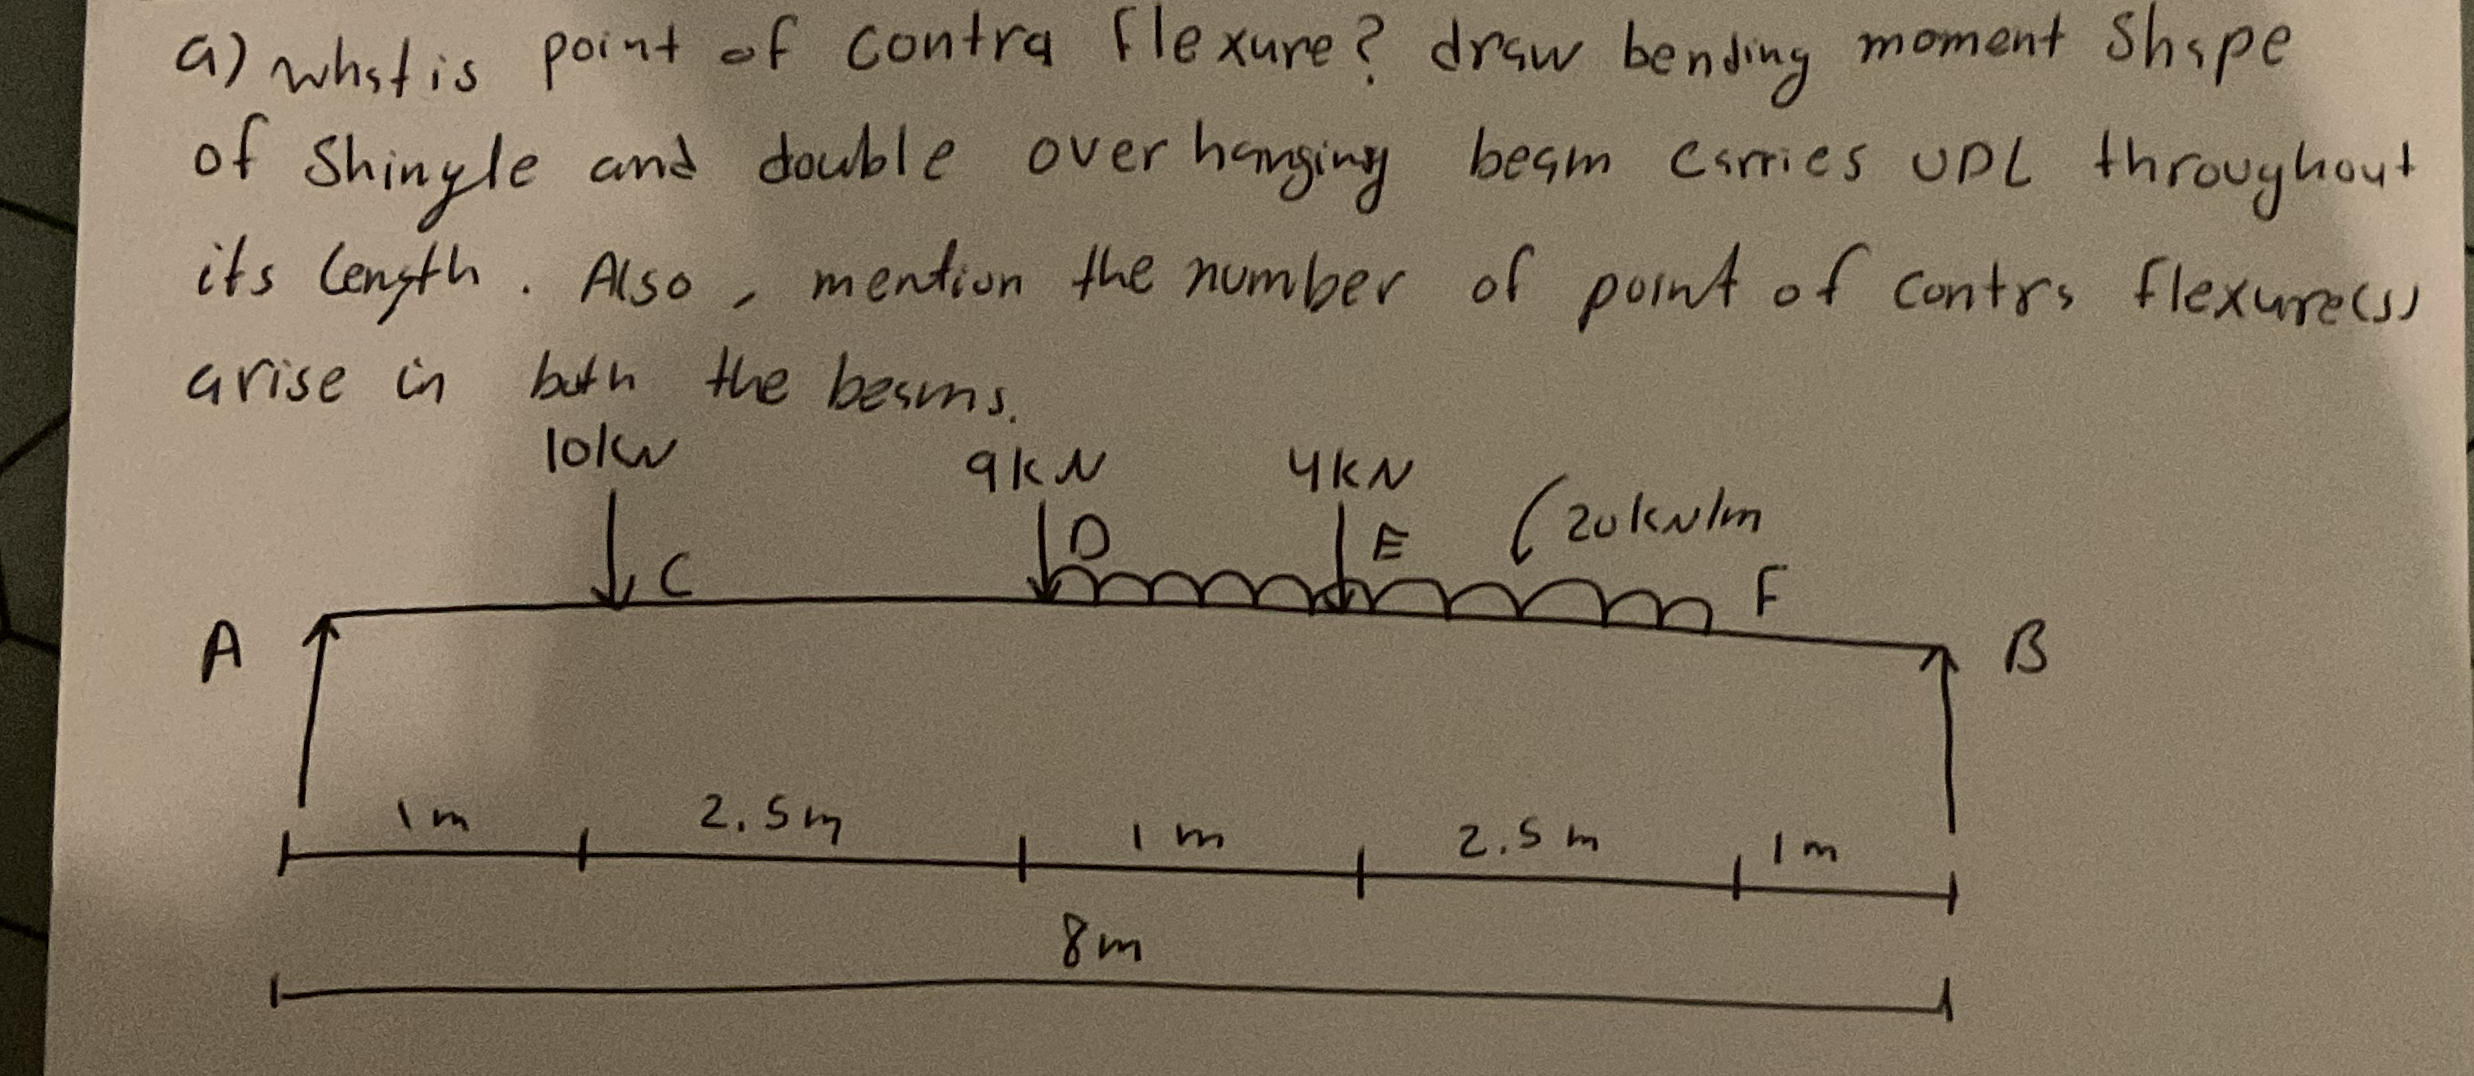 a) what is point of contra flexure? draw bending moment shape
of Shingle and double over hanging beam carries UDL throughout
its length. Also, mention the number of point of contra flexure(s)
arise in both the beams.
10kN 9kN 4kN 20kN/m
C D E F
A B
1m 2.5m 1m 2.5m 1m
8m